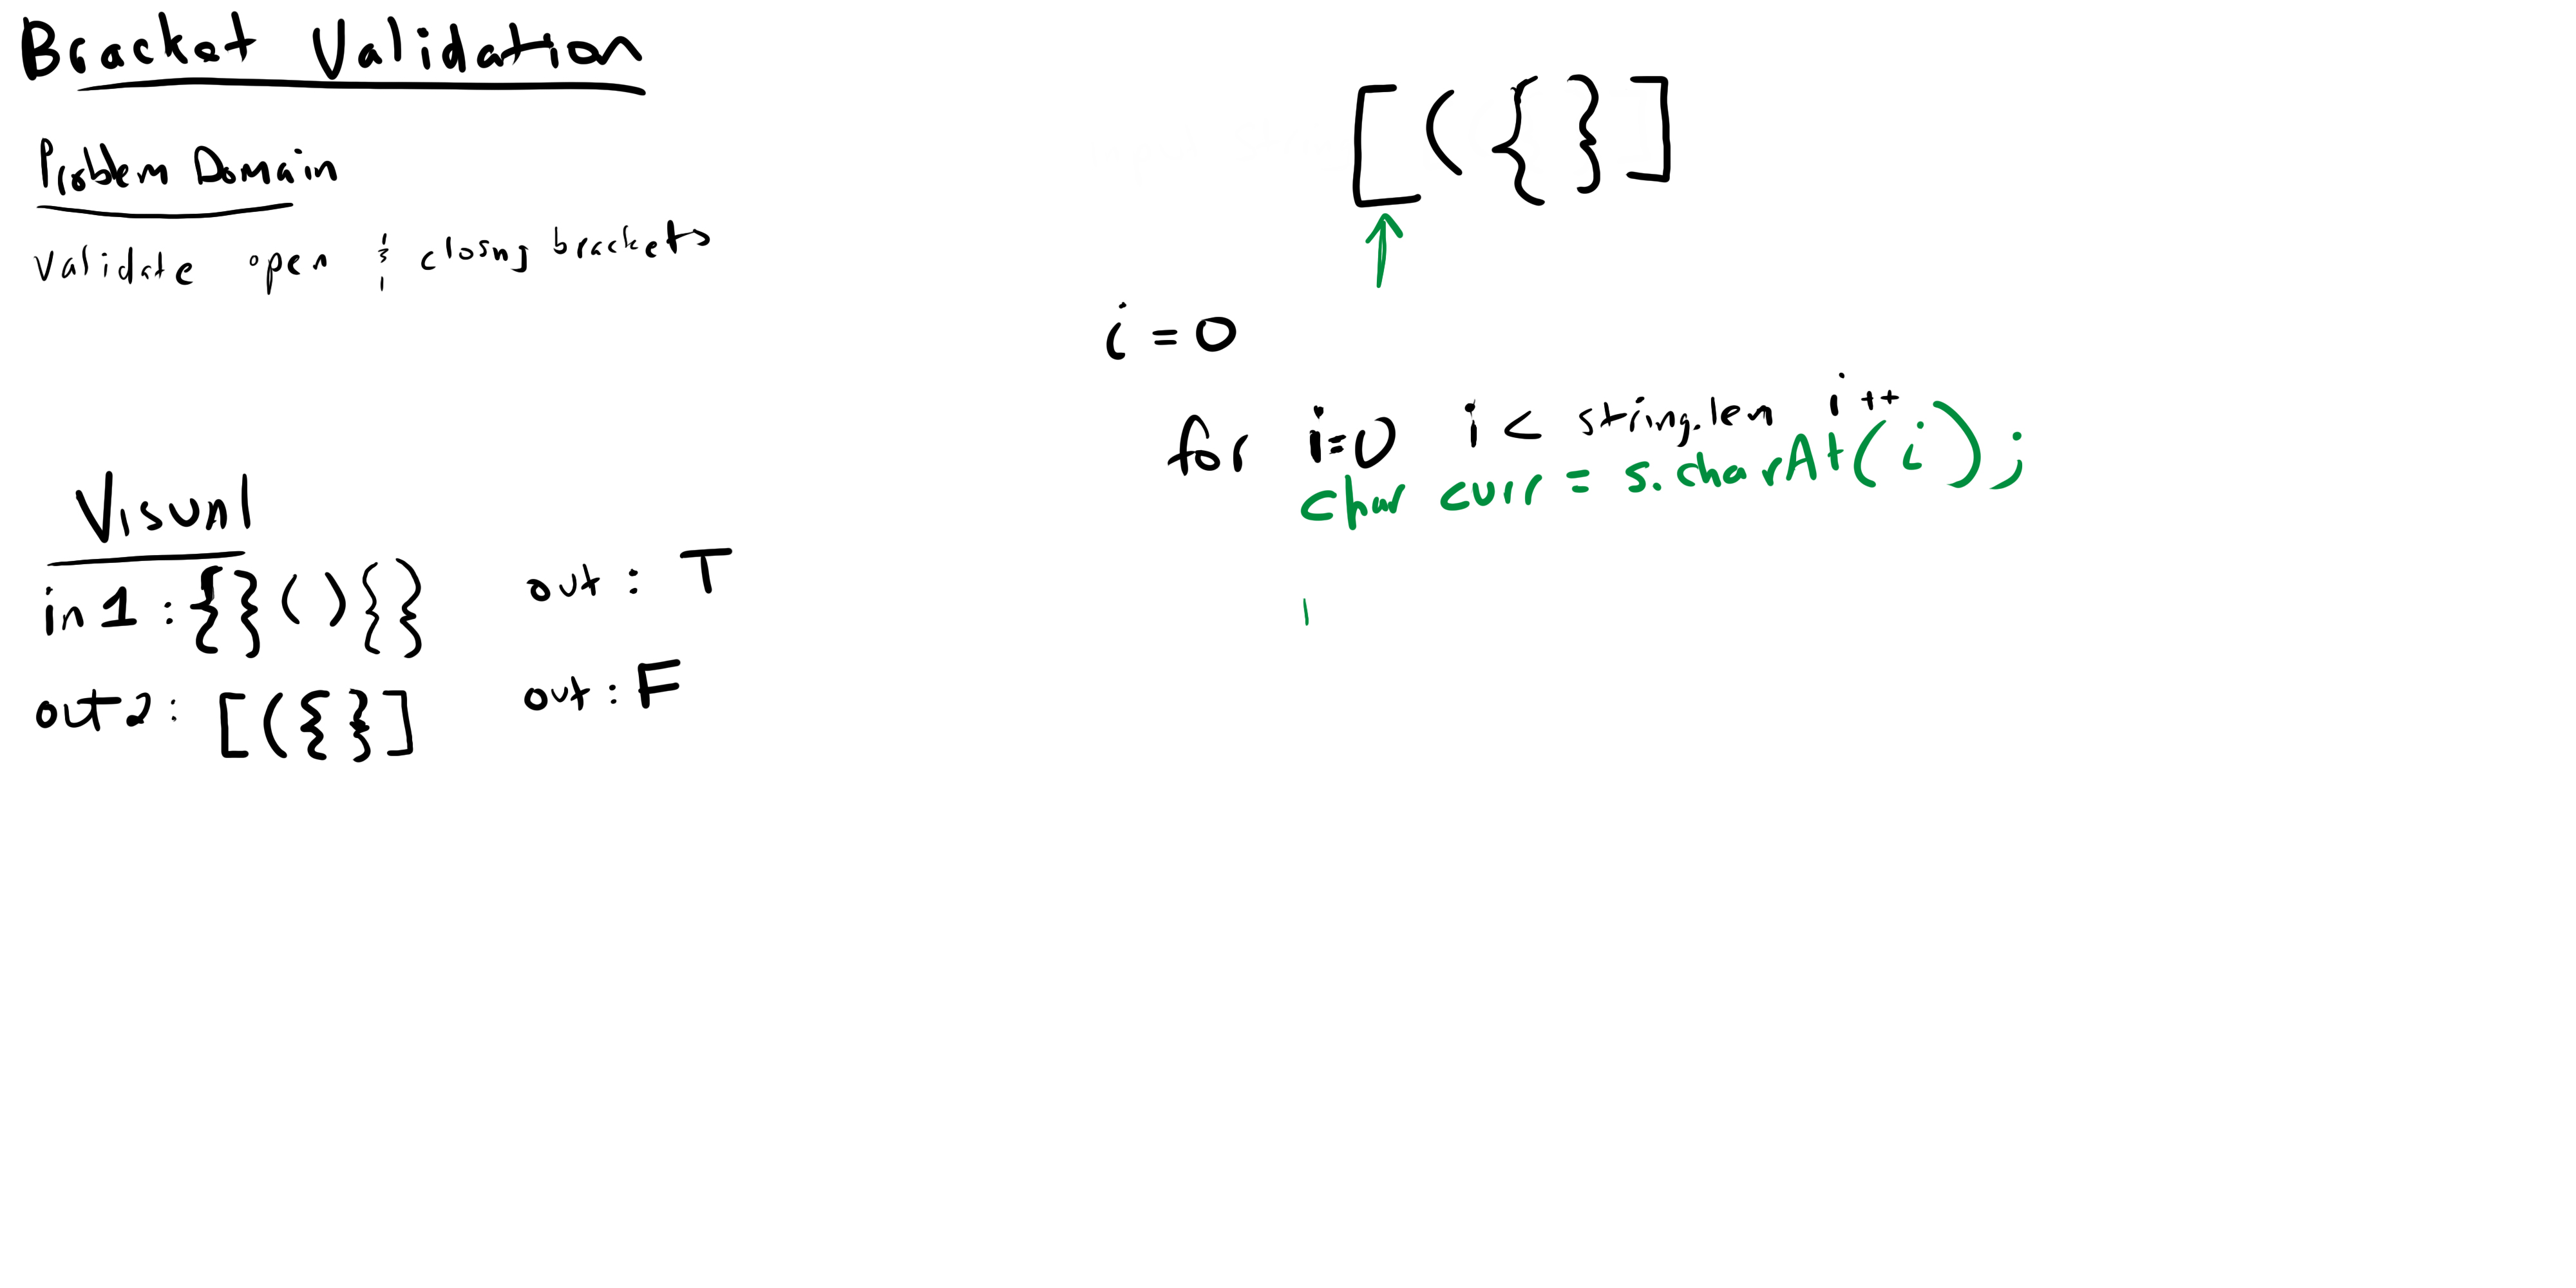 Bracket Validation
Problem Domain
Validate open & closng brackets
Visual
in1: {}(){} out: T
out2: [({}] out: F
[({}]
i = 0
for i=0 i < string.len i++
char curr = s.charAt(i);